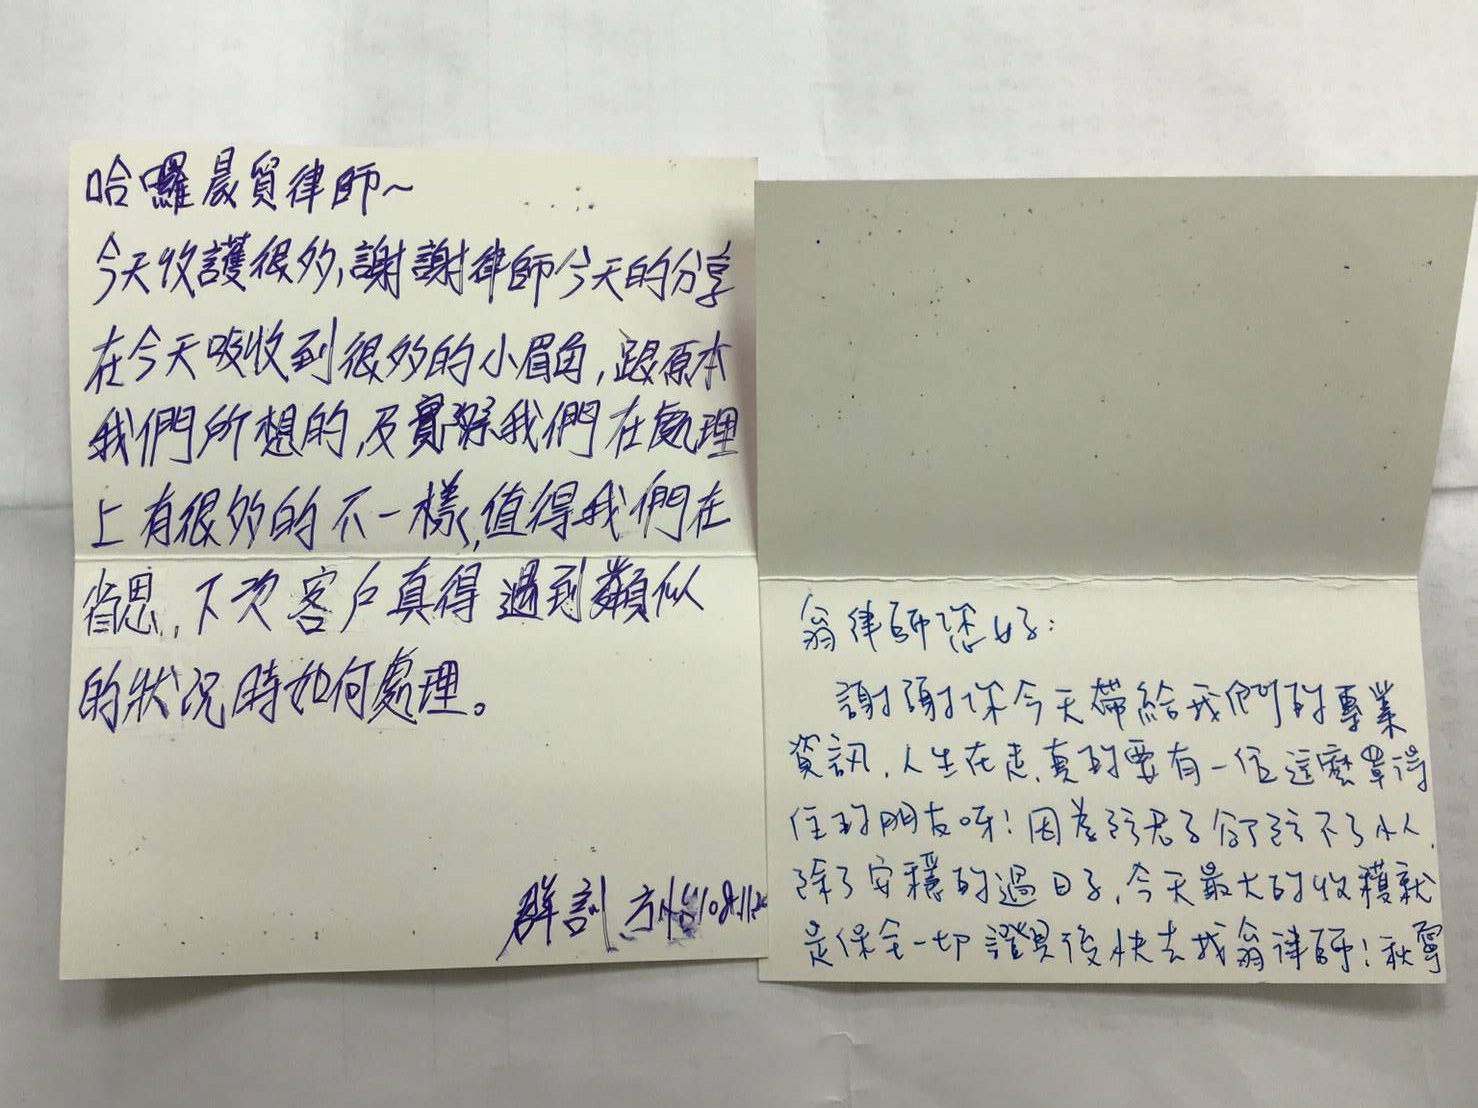 哈囉晨貿律師~
今天收護很多,謝謝律師今天的分享
在今天吸收到很多的小眉角,跟原本
我們所想的,及實際我們在處理
上有很多的不一樣,值得我們在
省思,下次客戶真得遇到類似
的狀況時如何處理。
群訓
108.11.
翁律師您好:
謝謝你今天帶給我們的專業
資訊,人生在走,真的要有一位這麼罩得
住的朋友呀!因為防君子卻防不了小人,
除了安穩的過日子,今天最大的收穫就
是保全一切證具後快去找翁律師!秋寧